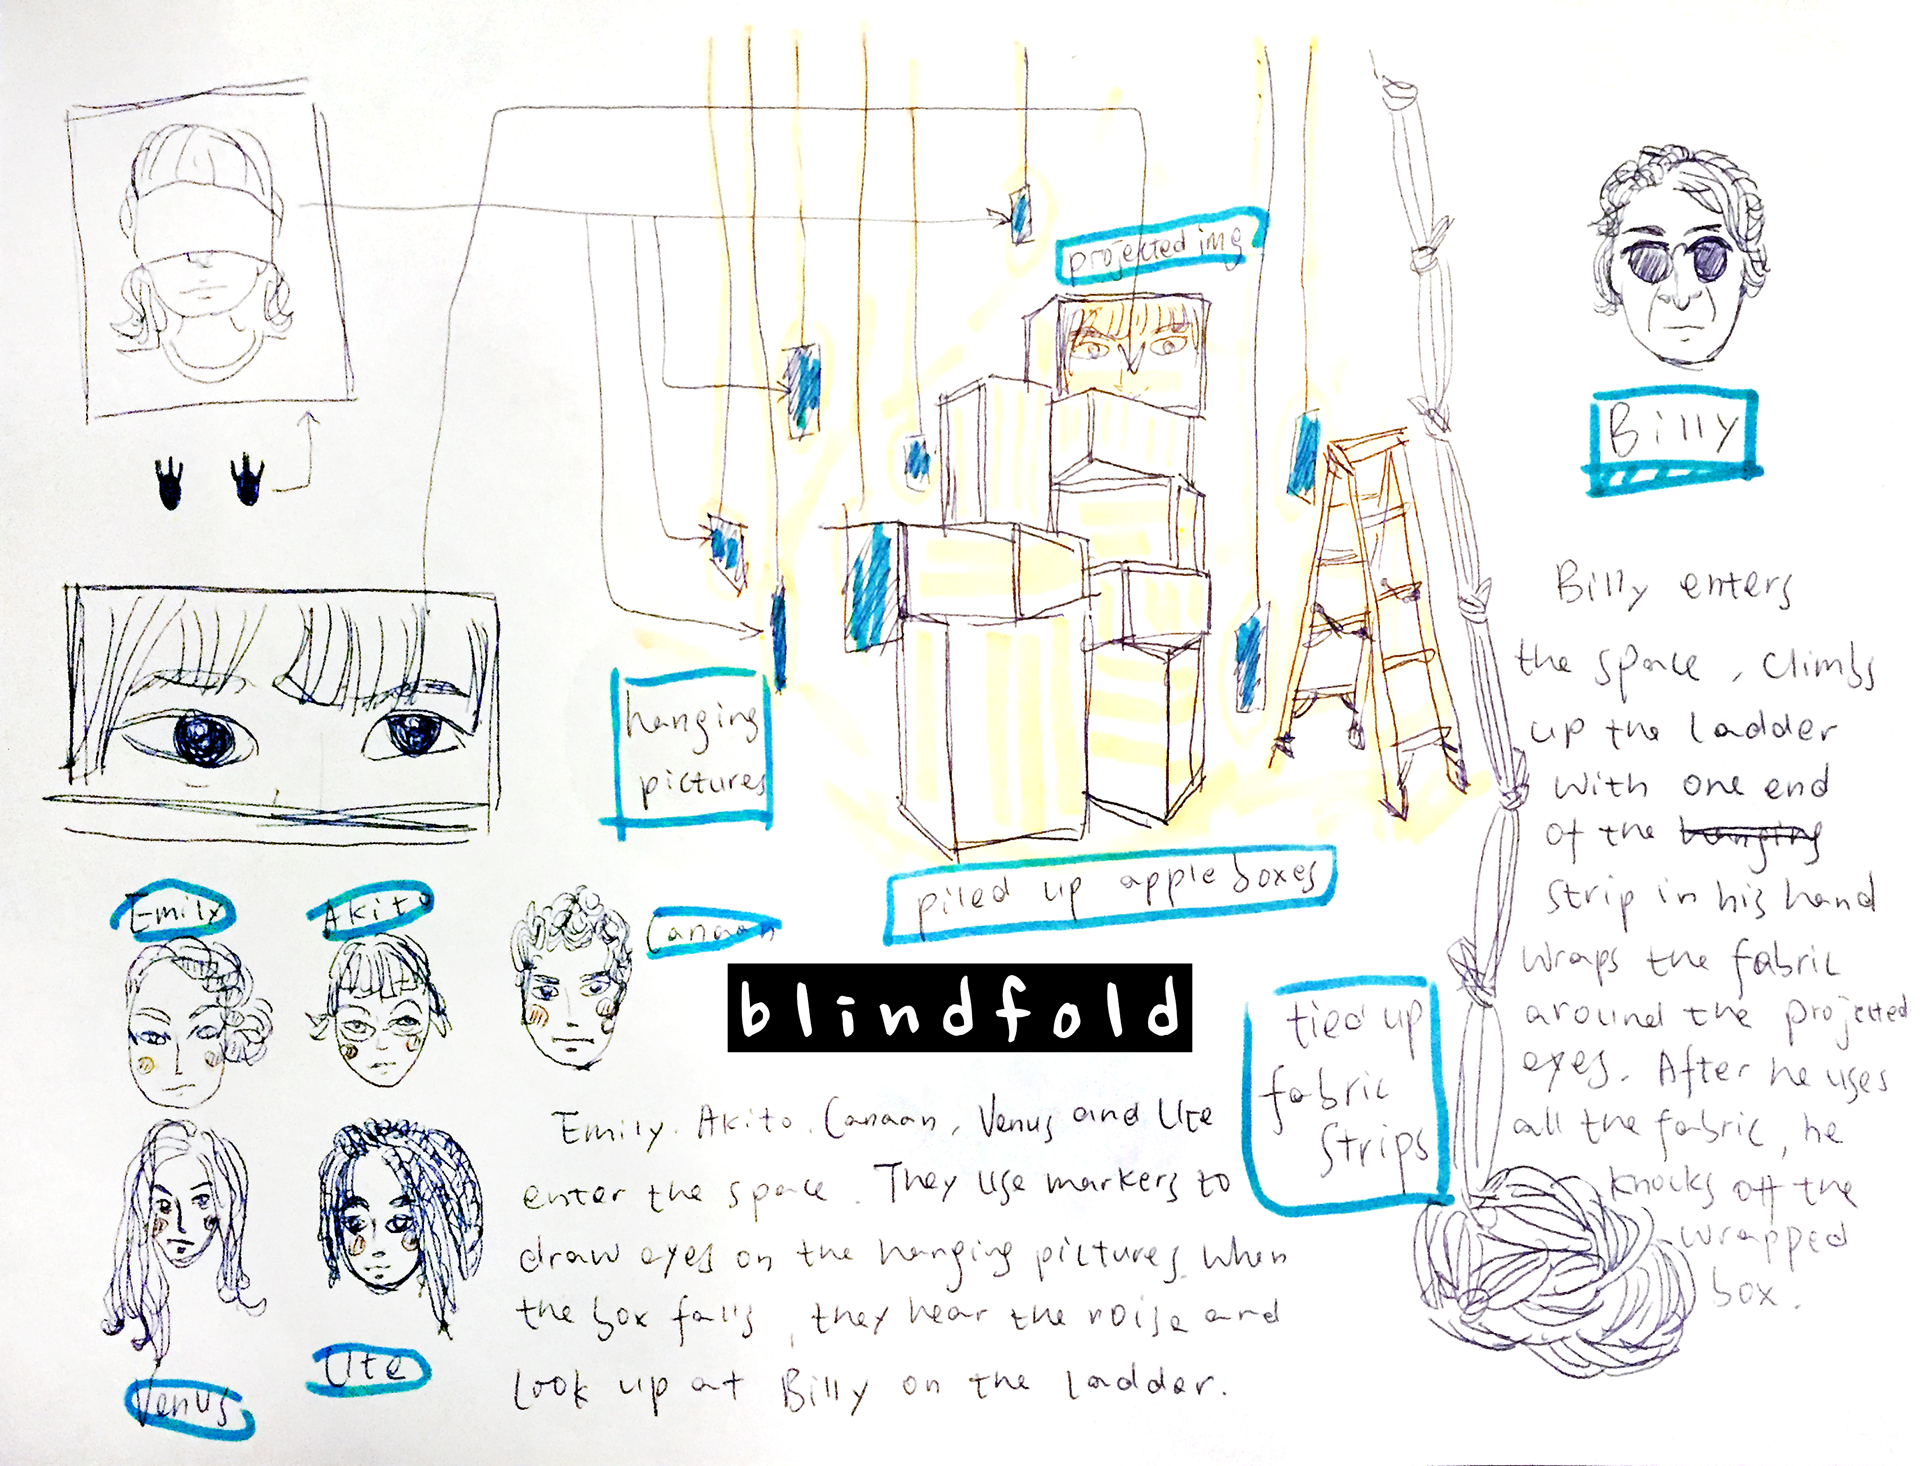 projected img
Billy
hanging
pictures
piled up apple boxes
Billy enters
the space, climbs
up the ladder
with one end
of the hanging
strip in his hand
wraps the fabric
around the projected
eyes. After he uses
all the fabric, he
knocks off the
wrapped
box.
tied up
fabric
strips
Emily
Akito
Canaan
Venus
Ute
blindfold
Emily. Akito. Canaan, Venus and Ute
enter the space. They use markers to
draw eyes on the hanging pictures. When
the box falls, they hear the noise and
look up at Billy on the ladder.